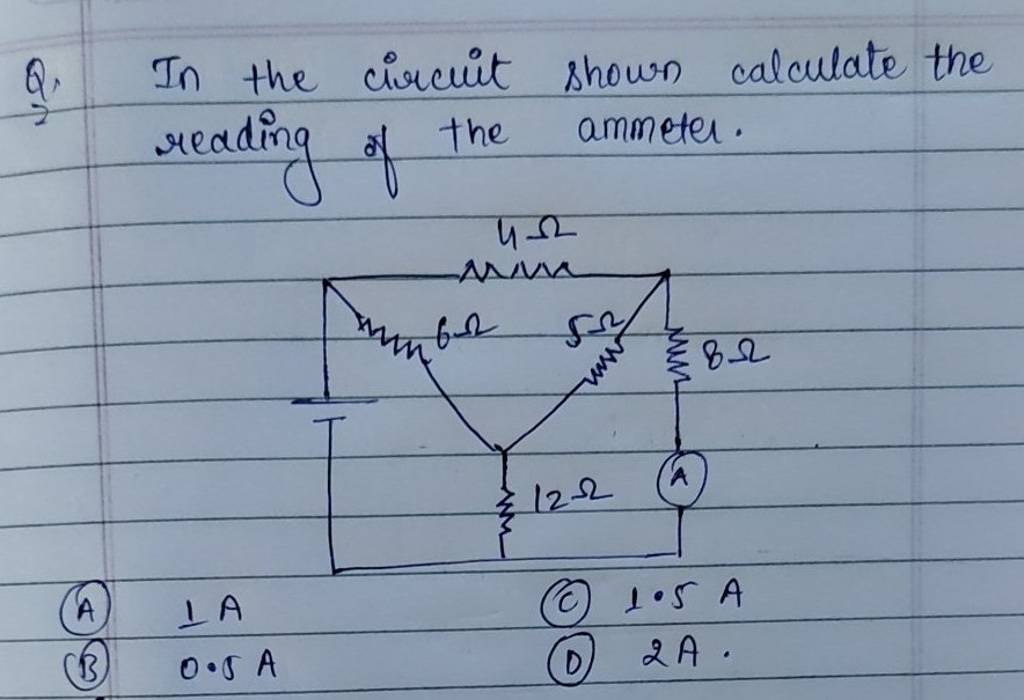 Q. In the circuit shown calculate the
reading of the ammeter.
4Ω
6Ω 5Ω
8Ω
A
12Ω
A 1 A
C 1.5 A
B 0.5 A
D 2A.